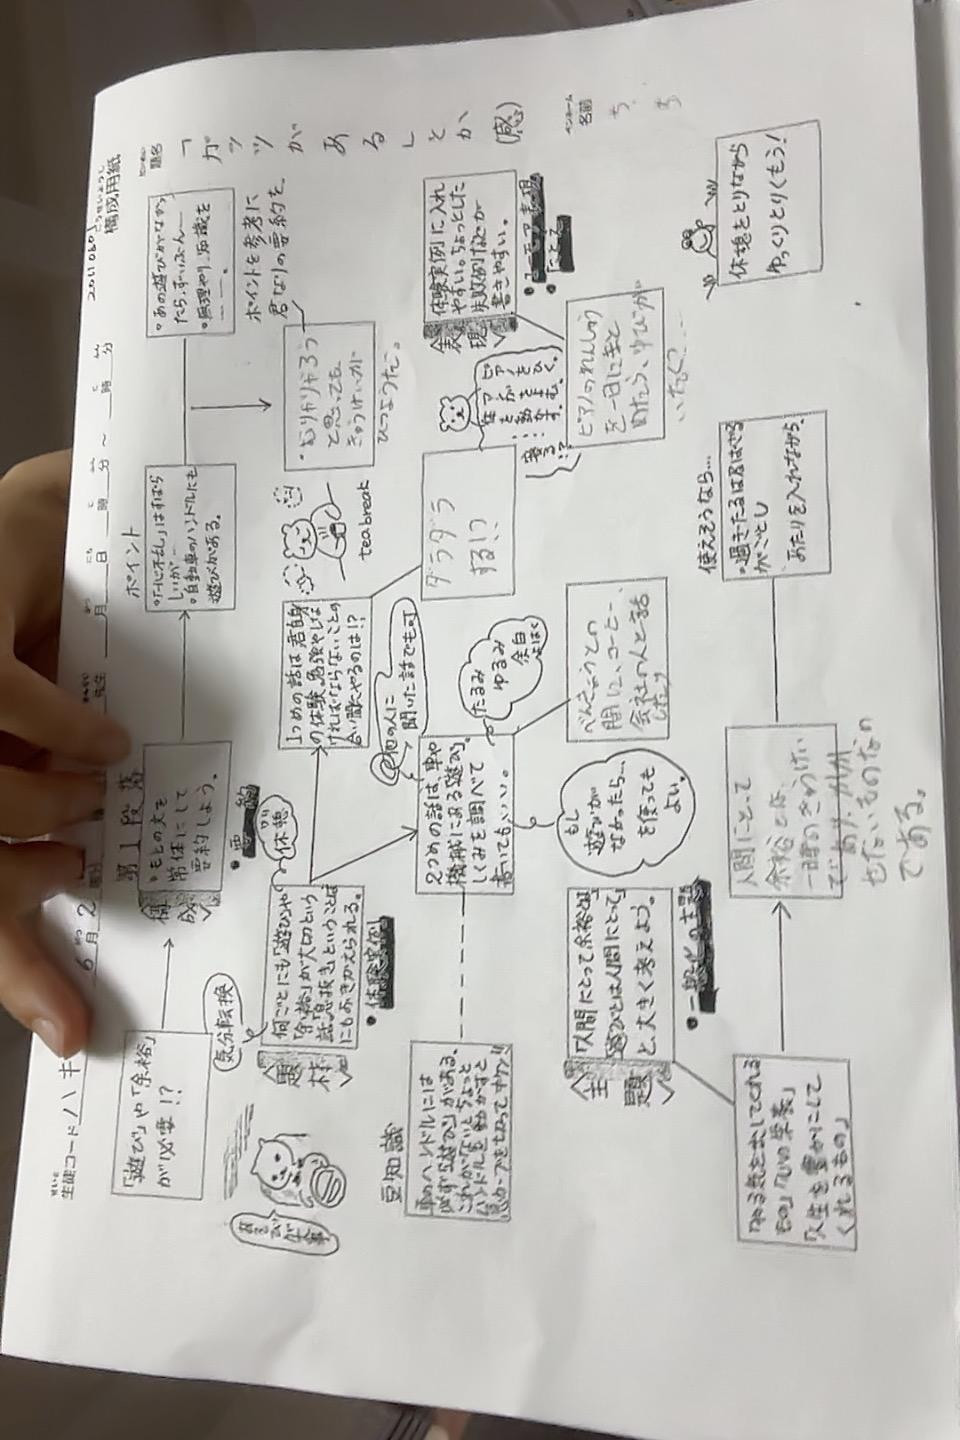 構成用紙
生徒コード ハキ
6月2
先生
月
日
時
分
～
時
分
題名
「ガッツが
ある」とか
(感)
名前
「遊び」や「余裕」
が必要!?
第1段落
構成
・もとの文を
常体にして
要約しよう。
・要約
ポイント
・自動車のハンドルにも
遊びがある。
・あの遊びがなかっ
たら、ずいぶん―
ポイントを参考に
君なりの要約を
・むりやりやろう
と思っても
きゅうけいが
ひつようだ。
気分転換
休憩
題材
何ごとにも「遊び」や
「余裕」が大切という
話。「息抜き」ということば
にもおきかえられる。
・体験実例
1つめの話は君自身
の体験。勉強やしな
ければならないことの
合い間にやるのは!?
tea break
ダラダラ
する!?
表現
体験実例に入れ
やすい。ちょっとした
失敗例などが
書きやすい。
・ユーモア表現
ピアノのれんしゅう
を一日にまと
めたら、ゆびが
いたく?……
豆知識
車のハンドルには
必ず「遊び」がある。
これがないとちょっと
ハンドルを動かすと
2つめの話は、車や
機械にある遊び。
しくみを調べて
書いてもいい。
他の人に
聞いた話でも可
たるみ
ゆるみ
余白
べんきょうとの
間に、コーヒー、
会社の人と話
したり
もし
遊びが
なかったら…
を使っても
よい。
主題
「人間にとって余裕とは」
「遊びとは人間にとって」
と、大きく考えよう。
・一般化の主題
「やる気を出してくれる
もの」「心の栄養」
「人生を豊かにして
くれるもの」
人間にとって
余裕とは、
一時のきゅうけい
であり、かか
せないものなの
である。
使えそうなら…
・過ぎたるは及ばざる
がごとし
あたりを入れながら。
休憩をとりながら
ゆっくりとりくもう!